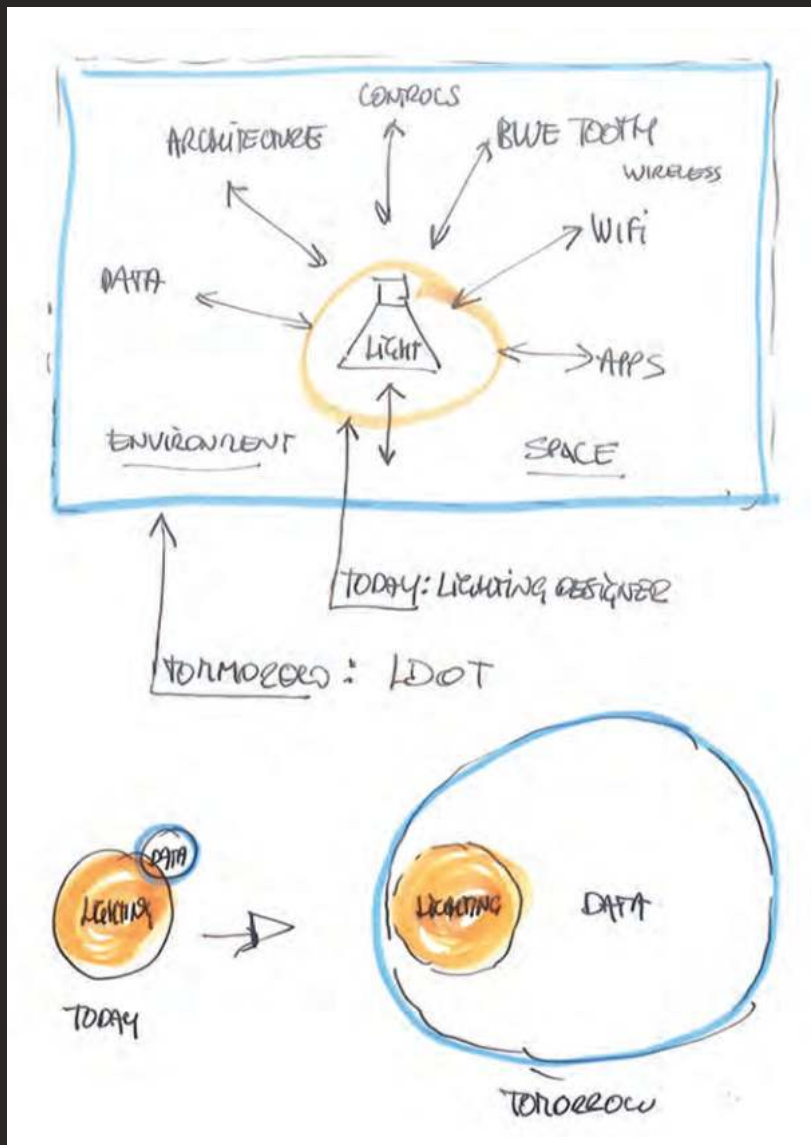 CONTROLS
ARCHITECTURE
BLUE TOOTH
WIRELESS
WIFI
DATA
LIGHT
APPS
ENVIRONMENT
SPACE
TODAY: LIGHTING DESIGNER
TORMOROW: LDOT
DATA
LIGHTING
LIGHTING
DATA
TODAY
TOMORROW